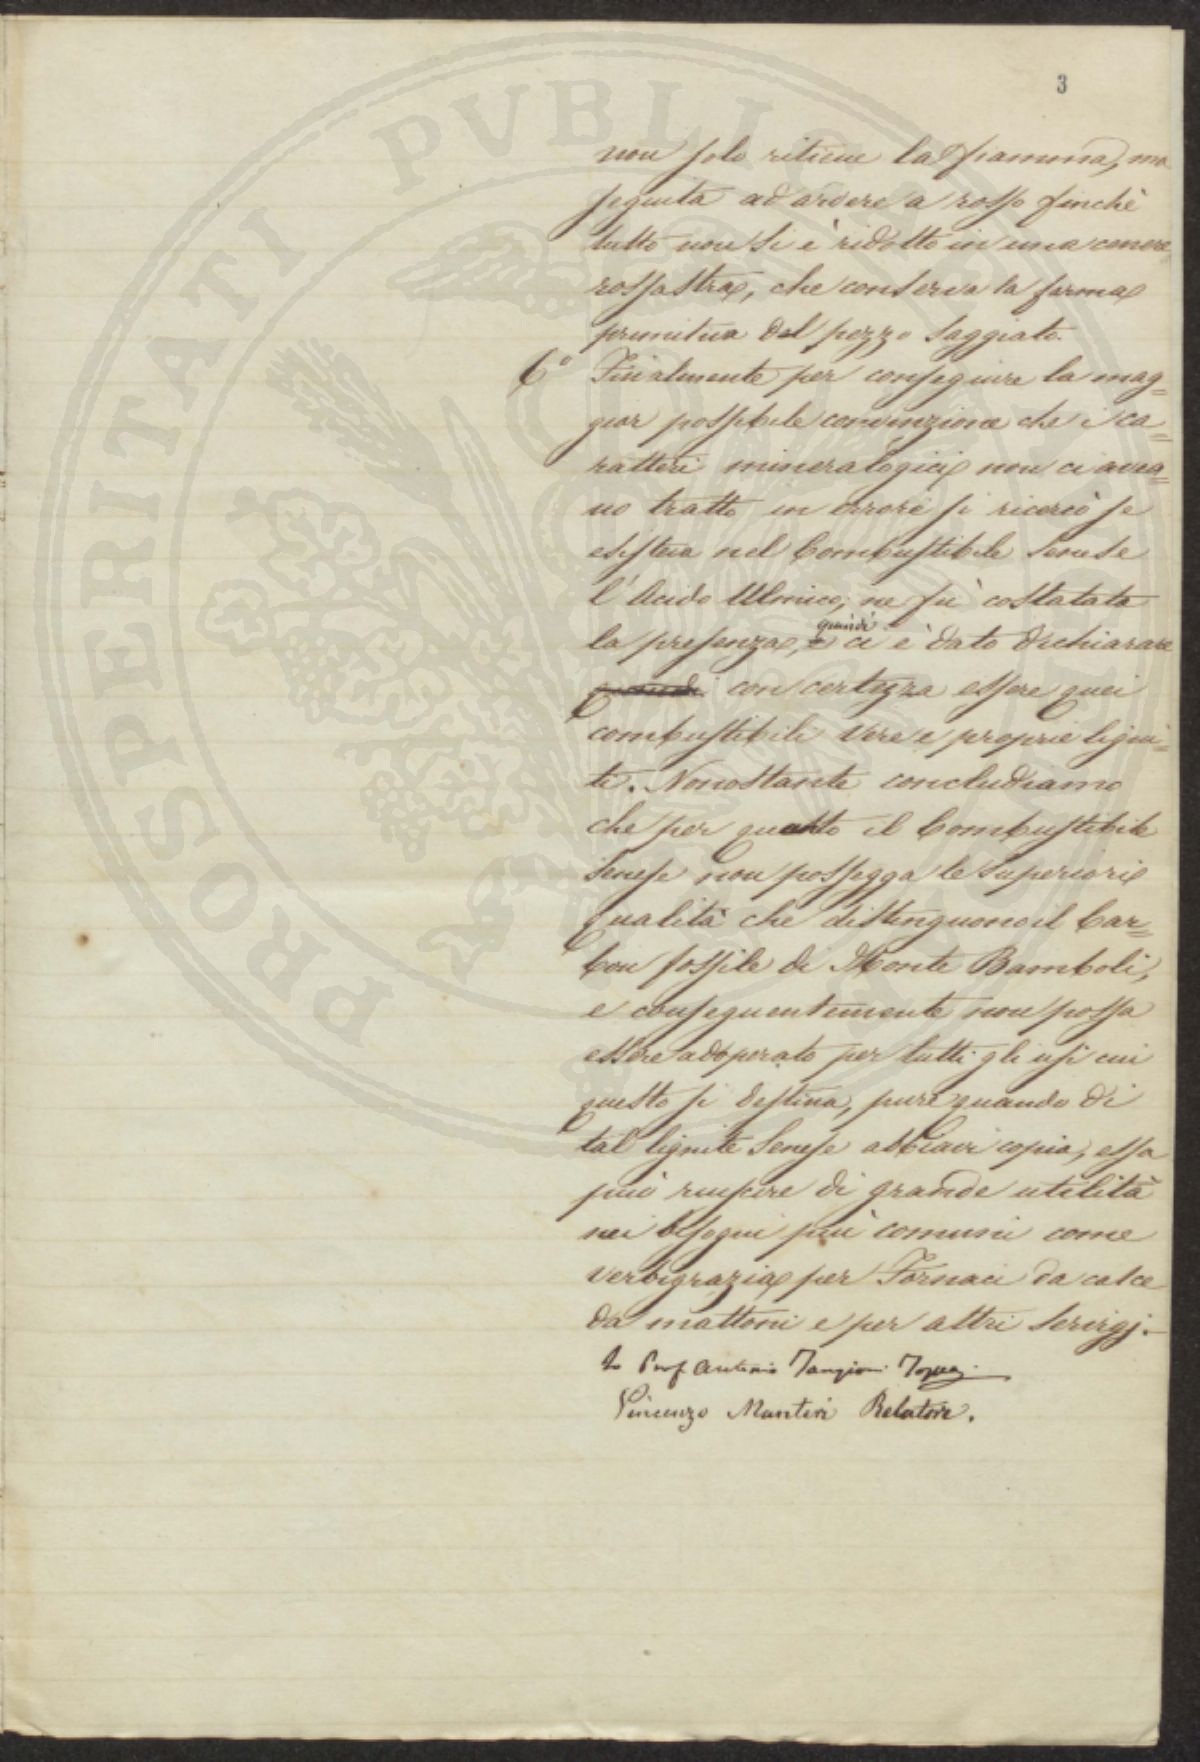 3
non solo ritiene la fiamma, ma
seguita ad ardere a rosso finchè
tutto non si è ridotto in una cenere
rossastra, che conserva la forma
primitiva del pezzo saggiato.
6° Finalmente per conseguire la mag=
gior possibile convinzione che i ca=
ratteri mineralogici non ci avea=
no tratto in errore si ricercò se
esisteva nel Combustibile Senese
l'Acido Ulmico; ne fù costatata
quindi
la presenza, e ci è dato dichiarare
quindi con certezza essere quei
combustibili vere e proprie ligni=
ti. Nonostante concludiamo
che per quanto il Combustibile
Senese non possegga le superiori
qualità che distinguono il Car=
bon fossile di Monte Bamboli,
e conseguentemente non possa
essere adoperato per tutti gli usi cui
questo si destina, pure quando di
tal lignite Senese abbiavi copia, essa
può riuscire di grande utilità
nei bisogni più comuni come
verbigrazia per Fornaci da calce
da mattoni e per altri servizj.
Prof Antonio Targioni Tozzetti
Vincenzo Manteri Relatore.
PROSPERITATI PVBLIC